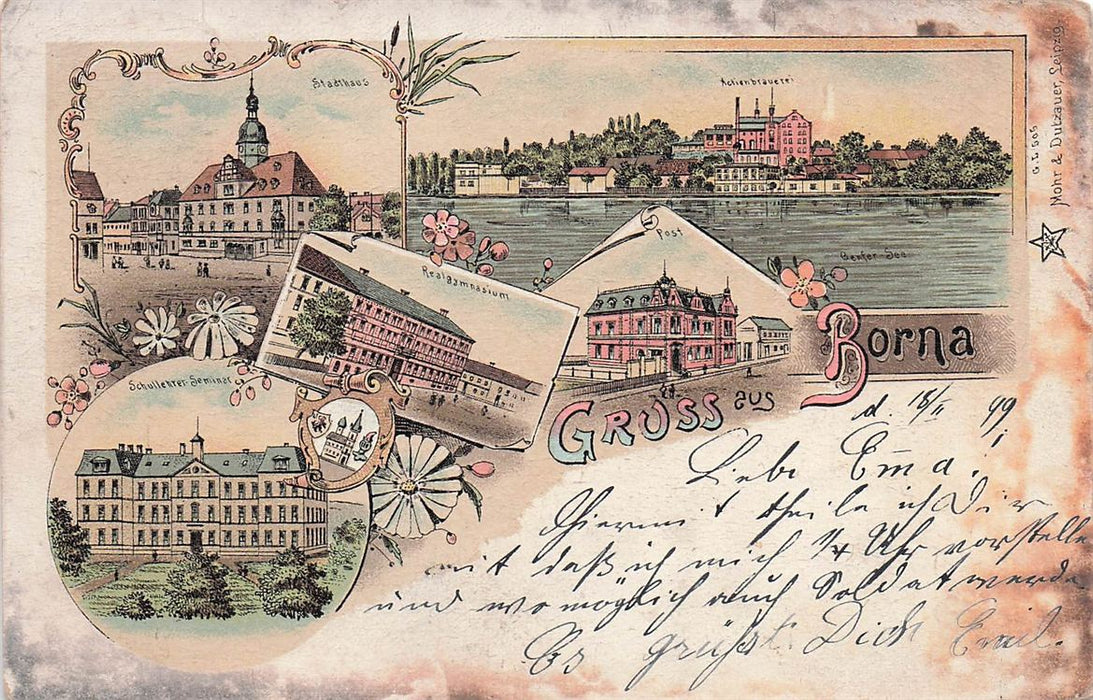 Stadthaus
Actienbrauerei
Realgymnasium
Post
Schullehrer-Seminar
GRUSS aus
Borna
G.L. 505
Mohr & Dutzauer, Leipzig
d. 18/11 99
Liebe Emma!
Hiermit theile ich Dir
mit daß ich mich 1/4 Uhr vorstelle
und womöglich auch Soldat werde
Es grüßt Dich Emil.